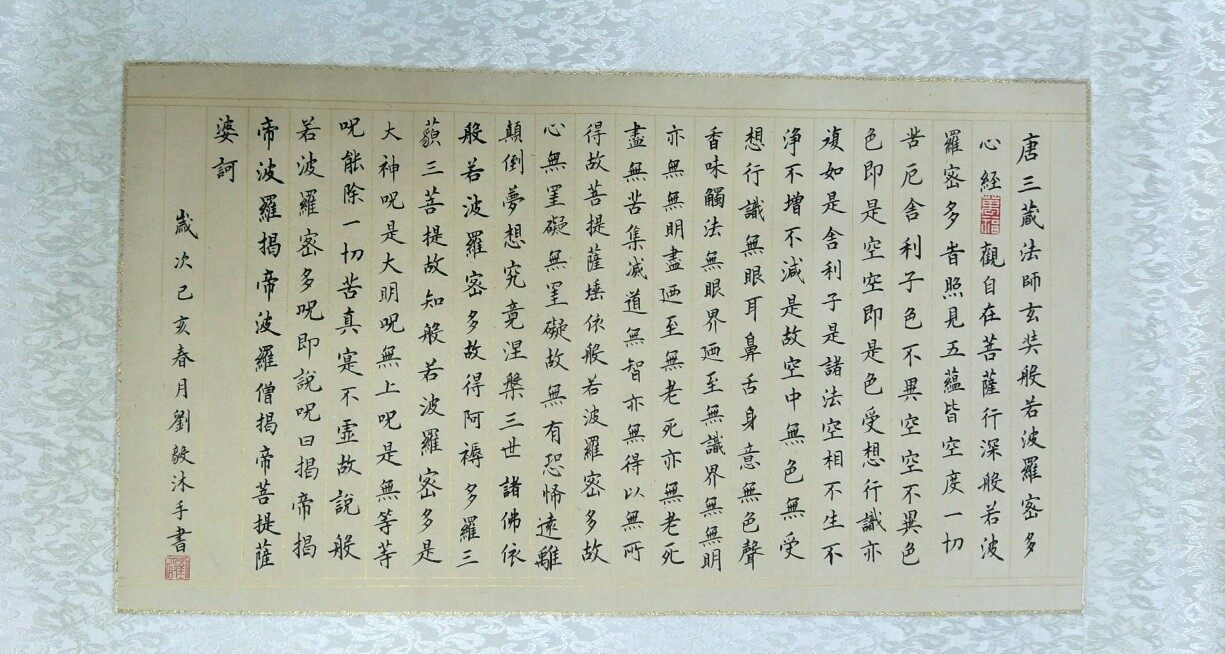 唐三蔵法師玄奘般若波羅密多
心經萬福觀自在菩薩行深般若波
羅密多旹照見五蘊皆空度一切
苦厄舍利子色不異空空不異色
色即是空空即是色受想行識亦
復如是舍利子是諸法空相不生不
淨不增不減是故空中無色無受
想行識無眼耳鼻舌身意無色聲
香味觸法無眼界廼至無識界無無明
亦無無明盡廼至無老死亦無老死
盡無苦集滅道無智亦無得以無所
得故菩提薩埵依般若波羅密多故
心無罣礙無罣礙故無有恐怖遠離
顛倒夢想究竟涅槃三世諸佛依
般若波羅密多故得阿耨多羅三
藐三菩提故知般若波羅密多是
大神呪是大明呪無上呪是無等等
呪能除一切苦真寔不虛故說般
若波羅密多呪即說呪曰揭帝揭
帝波羅揭帝波羅僧揭帝菩提薩
婆訶
歲次己亥春月劉毅沐手書